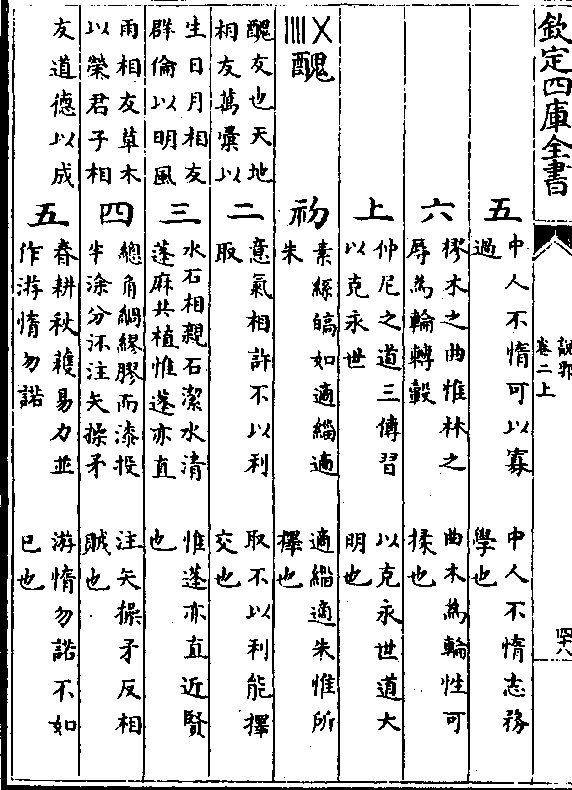 欽定四庫全書
說郛
卷二上
五
中人不惰可以寡
過
中人不惰志務
學也
六
樛木之曲惟林之
辱為輪轉轂
曲木為輪性可
揉也
上
仲尼之道三傳習
以克永世
以克永世道大
明也
醜
初
素絲皜如適緇適
朱
適緇適朱惟所
擇也
醜友也天地
相友萬彙以
二
意氣相許不以利
取
取不以利能擇
交也
生日月相友
群倫以明風
三
水石相親石潔水清
蓬麻共植惟蓬亦直
惟蓬亦直近賢
也
雨相友草木
以榮君子相
四
總角綢繆膠而漆投
半涂分注矢操矛
注矢操矛反相
賊也
友道德以成
五
春耕秋穫易力並
作游惰勿諾
游惰勿諾不如
已也